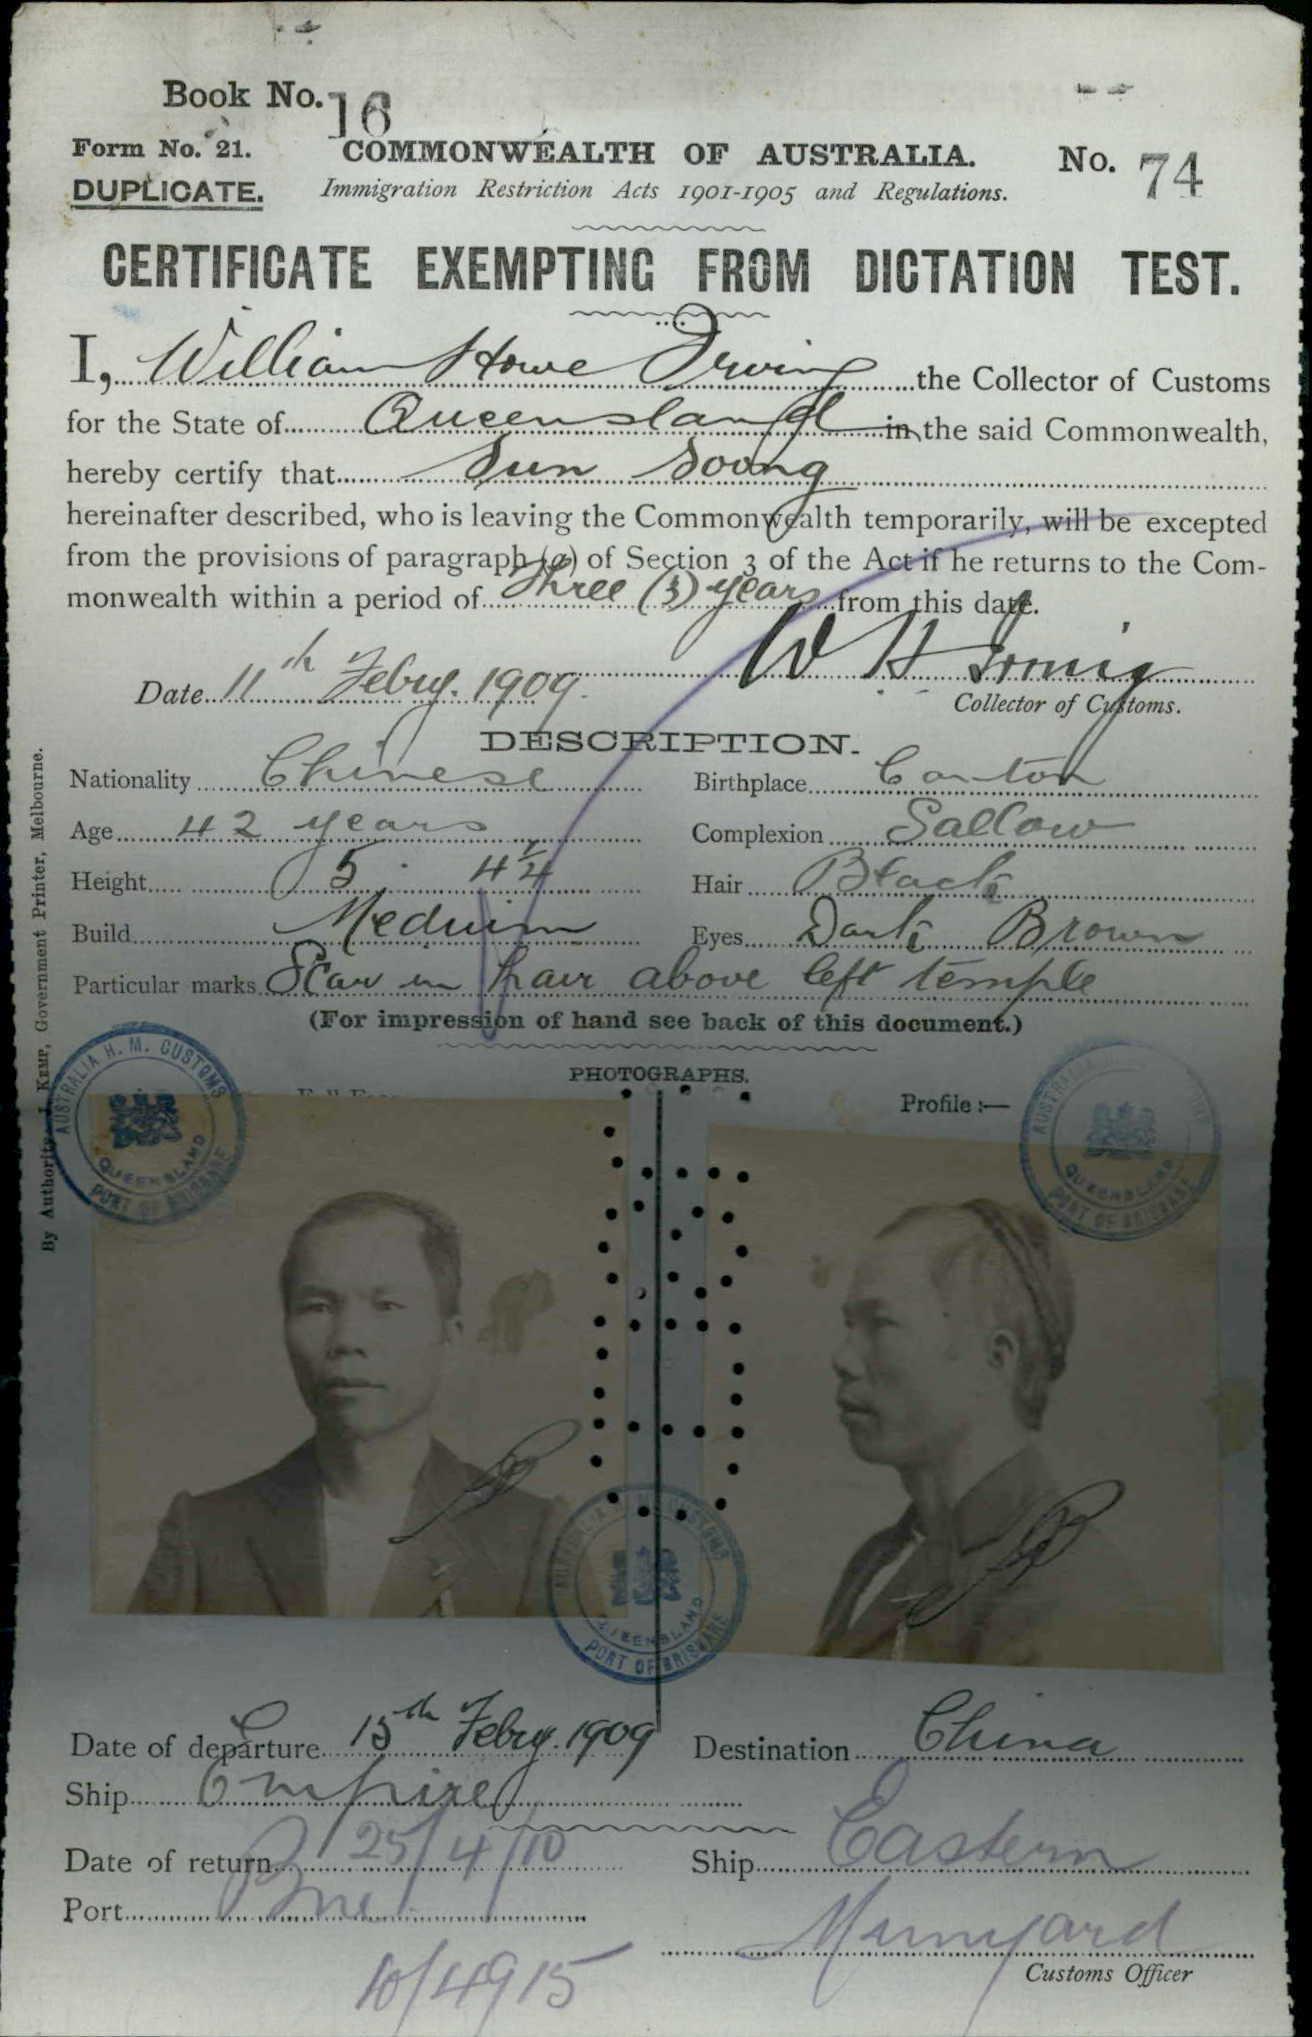 Book No. 16
Form No. 21. COMMONWEALTH OF AUSTRALIA. No. 74
DUPLICATE. Immigration Restriction Acts 1901-1905 and Regulations.
CERTIFICATE EXEMPTING FROM DICTATION TEST.
I, William Howe Irving the Collector of Customs
for the State of Queensland in the said Commonwealth,
hereby certify that Sun Soong
hereinafter described, who is leaving the Commonwealth temporarily, will be excepted
from the provisions of paragraph (a) of Section 3 of the Act if he returns to the Com-
monwealth within a period of Three (3) years from this date.
W H Irving
Date 11th Febry. 1909. Collector of Customs.
DESCRIPTION.
Nationality Chinese Birthplace Canton
Age 42 years Complexion Sallow
Height 5' 4¼ Hair Black
Build Medium Eyes Dark Brown
Particular marks Scar in hair above left temple
(For impression of hand see back of this document.)
By Authority: J. KEMP, Government Printer, Melbourne.
PHOTOGRAPHS.
Profile :—
AUSTRALIA H. M. CUSTOMS
QUEENSLAND
PORT OF BRISBANE
AUSTRALIA
QUEENSLAND
PORT OF BRISBANE
AUSTRALIA CUSTOMS
QUEENSLAND
PORT OF BRISBANE
Date of departure 15th Febry. 1909 Destination China
Ship Empire
Date of return 25/4/10 Ship Eastern
Port Bne
Customs Officer
10/4915